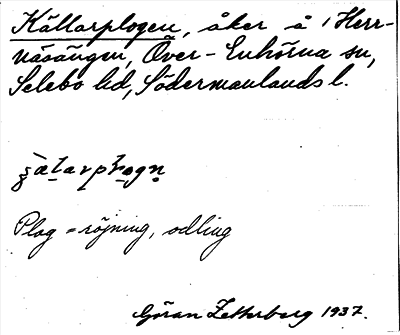 Källarplogen, åker å 1 Herr-
näsängen, Över-Enhörna sn,
Selebo hd, Södermanlands l.
Plog = röjning, odling
Göran Zetterberg 1937.